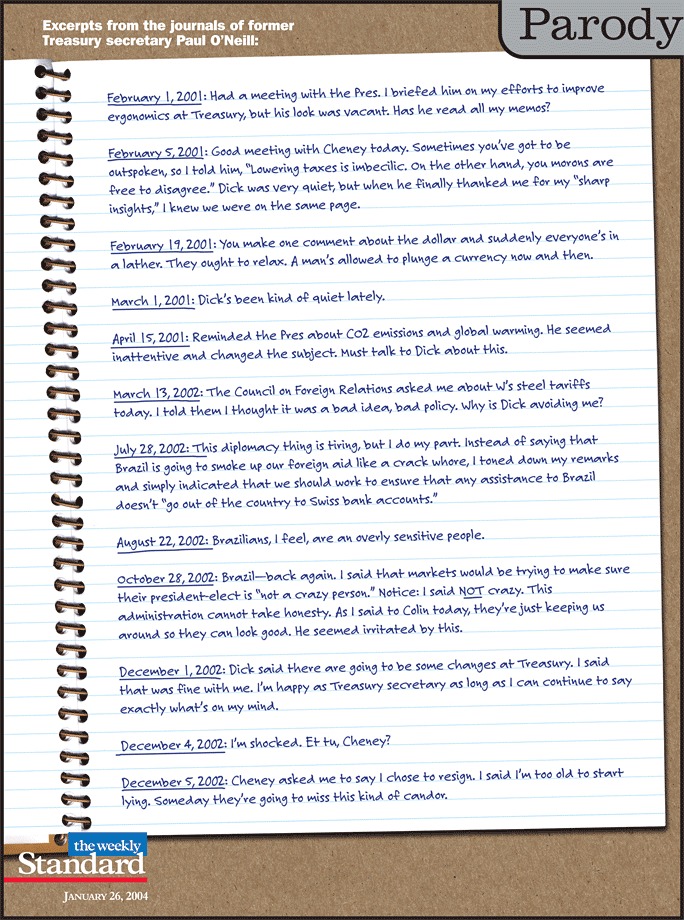 Excerpts from the journals of former
Treasury secretary Paul O'Neill:
Parody
February 1, 2001: Had a meeting with the Pres. I briefed him on my efforts to improve
ergonomics at Treasury, but his look was vacant. Has he read all my memos?
February 5, 2001: Good meeting with Cheney today. Sometimes you've got to be
outspoken, so I told him, "Lowering taxes is imbecilic. On the other hand, you morons are
free to disagree." Dick was very quiet, but when he finally thanked me for my "sharp
insights," I knew we were on the same page.
February 19, 2001: You make one comment about the dollar and suddenly everyone's in
a lather. They ought to relax. A man's allowed to plunge a currency now and then.
March 1, 2001: Dick's been kind of quiet lately.
April 15, 2001: Reminded the Pres about CO2 emissions and global warming. He seemed
inattentive and changed the subject. Must talk to Dick about this.
March 13, 2002: The Council on Foreign Relations asked me about W's steel tariffs
today. I told them I thought it was a bad idea, bad policy. Why is Dick avoiding me?
July 28, 2002: This diplomacy thing is tiring, but I do my part. Instead of saying that
Brazil is going to smoke up our foreign aid like a crack whore, I toned down my remarks
and simply indicated that we should work to ensure that any assistance to Brazil
doesn't "go out of the country to Swiss bank accounts."
August 22, 2002: Brazilians, I feel, are an overly sensitive people.
October 28, 2002: Brazil—back again. I said that markets would be trying to make sure
their president-elect is "not a crazy person." Notice: I said NOT crazy. This
administration cannot take honesty. As I said to Colin today, they're just keeping us
around so they can look good. He seemed irritated by this.
December 1, 2002: Dick said there are going to be some changes at Treasury. I said
that was fine with me. I'm happy as Treasury secretary as long as I can continue to say
exactly what's on my mind.
December 4, 2002: I'm shocked. Et tu, Cheney?
December 5, 2002: Cheney asked me to say I chose to resign. I said I'm too old to start
lying. Someday they're going to miss this kind of candor.
the weekly
Standard
JANUARY 26, 2004